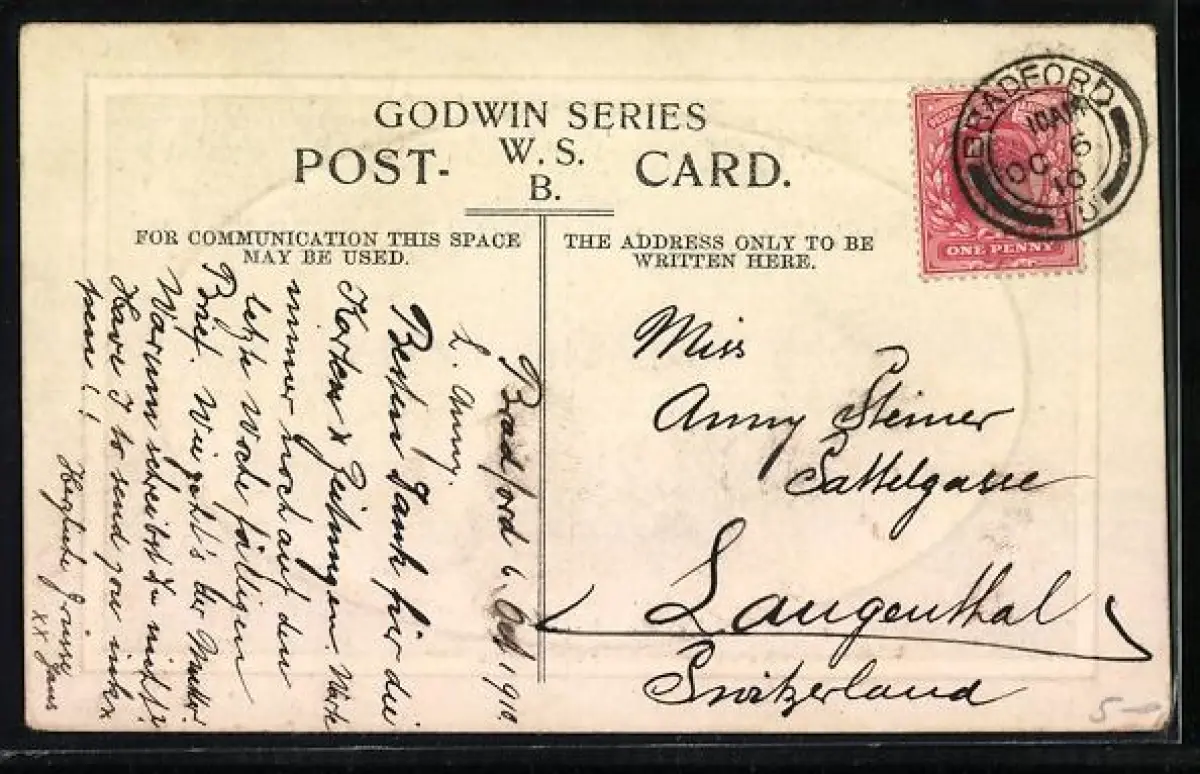 GODWIN SERIES
POST- W. S. B. CARD.
FOR COMMUNICATION THIS SPACE
MAY BE USED.
THE ADDRESS ONLY TO BE
WRITTEN HERE.
BRADFORD
10 AM
OC 6
10
ONE PENNY
Bradford 6. Okt 1910.
L. Anny.
Besten Dank für die
Karten & Zeitungen. Warte
immer noch auf den
letzte Woche fälligen
Brief. Wie geht's der Mutter.
Warum schreibst Du nicht?
Have I to send you ink &
pen!!
Herzliche Grüsse
xx Hans
Miss
Anny Steiner
Sattelgasse
Langenthal
Switzerland
5-